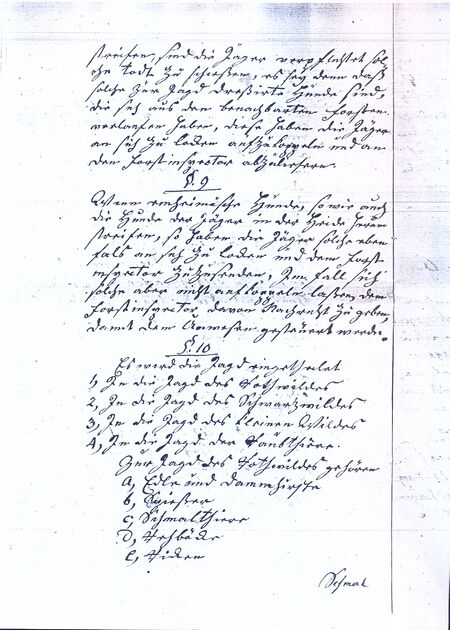 streifen, sind die Jäger verpflichtet sol
che todt zu schießen, es sey denn daß
solche zur Jagd dreßirte Hunde sind,
die sich aus den benachbarten Forsten
verlaufen haben, diese haben die Jäger
an sich zu locken aufzukoppeln und an
den Forstinspector abzuliefern.
§. 9
Wenn einheimische Hunde, so wie auch
die Hunde der Jäger in der Heide herum
streifen, so haben die Jäger solche eben
fals an sich zu locken und dem Forst
inspector zuzusenden, Im Fall sich
solche aber nicht aufkoppeln laßen, dem
Forstinspector davon Nachricht zu geben,
damit dem Unwesen gesteuert werde.
§. 10
Es wird die Jagd eingetheilet
1, In die Jagd des Rothwildes
2, In die Jagd des Schwarzwildes
3, In die Jagd des kleinen Wildes
4, In die Jagd der Raubthiere.
Zur Jagd des Rothwildes gehören
a, Edle und Dammhirsche
b, Spießer
c, Schmalthiere
d, Rehböcke
e, Ricken
Schmal